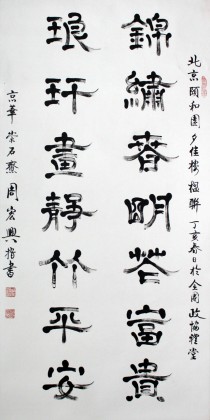 北京頤和園夕佳樓楹聯 丁亥春日於全國政協禮堂
錦繡春明花富貴
琅玕晝靜竹平安
京華崇石齋周宏興指書